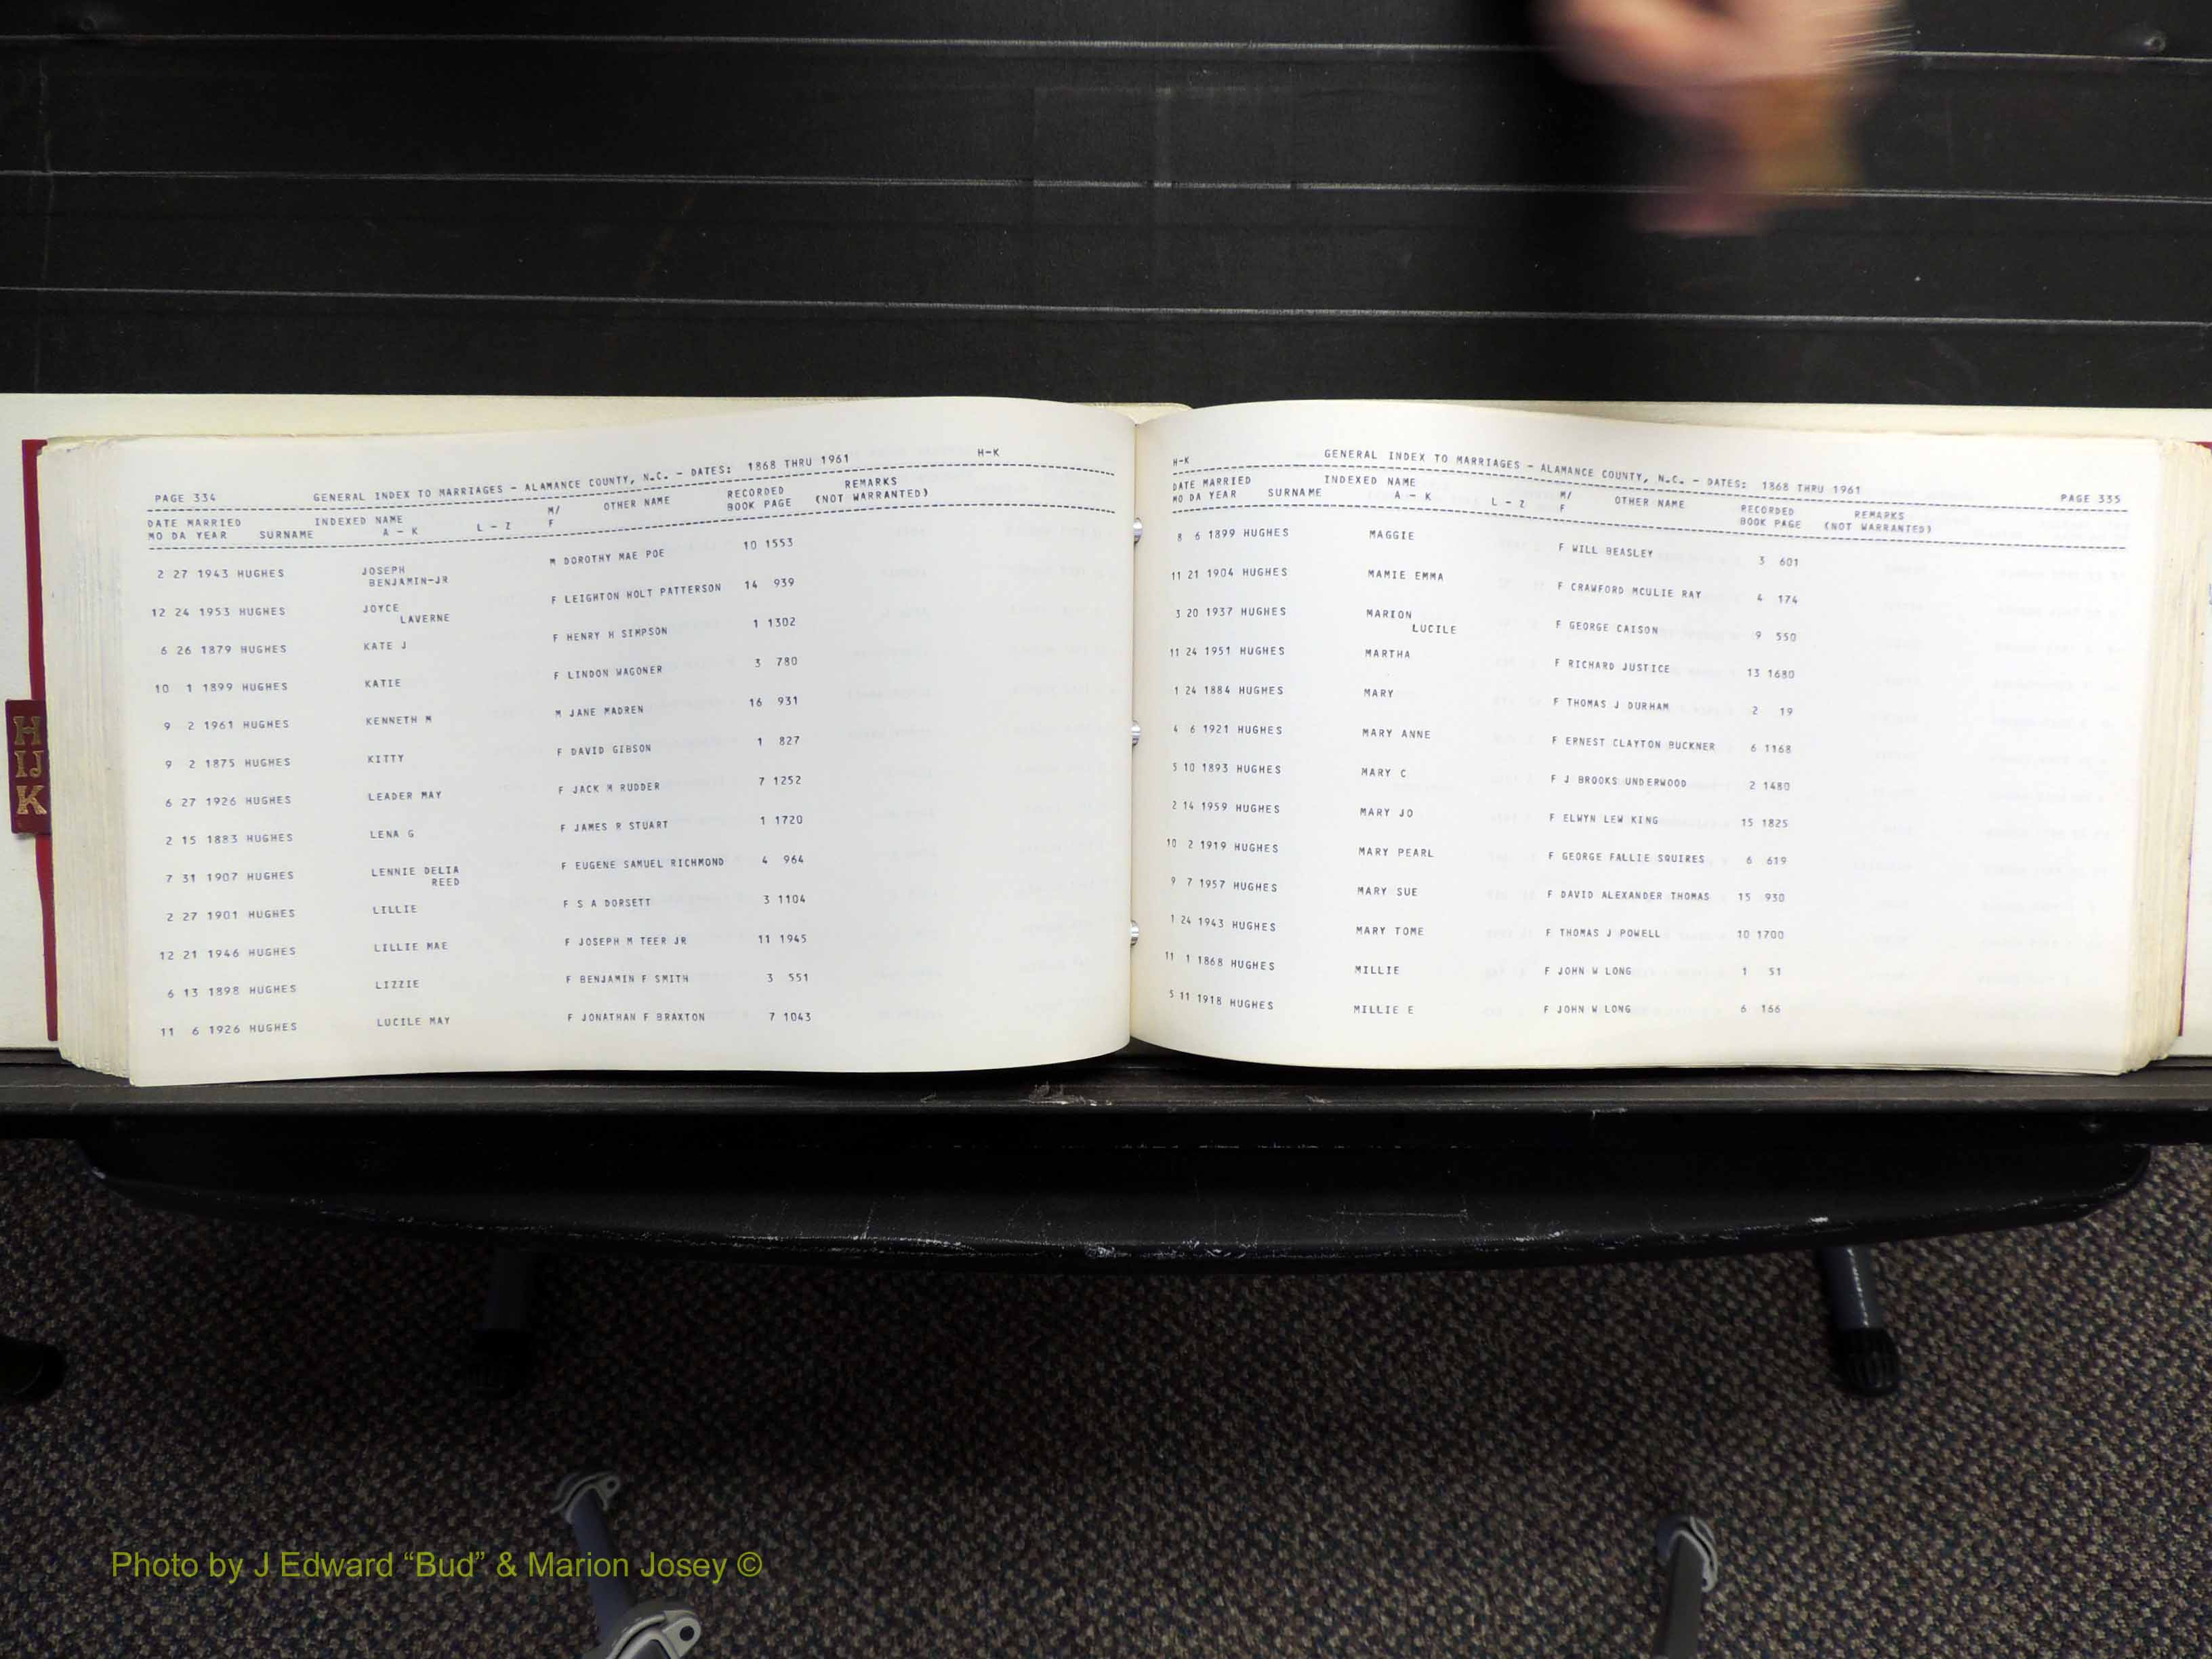 H
IJ
K
PAGE 334 GENERAL INDEX TO MARRIAGES - ALAMANCE COUNTY, N.C. - DATES: 1868 THRU 1961 H-K
DATE MARRIED INDEXED NAME M/ OTHER NAME RECORDED REMARKS
MO DA YEAR SURNAME A - K L - Z F BOOK PAGE (NOT WARRANTED)
2 27 1943 HUGHES JOSEPH M DOROTHY MAE POE 10 1553
BENJAMIN-JR
12 24 1953 HUGHES JOYCE F LEIGHTON HOLT PATTERSON 14 939
LAVERNE
6 26 1879 HUGHES KATE J F HENRY H SIMPSON 1 1302
10 1 1899 HUGHES KATIE F LINDON WAGONER 3 780
9 2 1961 HUGHES KENNETH M M JANE MADREN 16 931
9 2 1875 HUGHES KITTY F DAVID GIBSON 1 827
6 27 1926 HUGHES LEADER MAY F JACK M RUDDER 7 1252
2 15 1883 HUGHES LENA G F JAMES R STUART 1 1720
7 31 1907 HUGHES LENNIE DELIA F EUGENE SAMUEL RICHMOND 4 964
REED
2 27 1901 HUGHES LILLIE F S A DORSETT 3 1104
12 21 1946 HUGHES LILLIE MAE F JOSEPH M TEER JR 11 1945
6 13 1898 HUGHES LIZZIE F BENJAMIN F SMITH 3 551
11 6 1926 HUGHES LUCILE MAY F JONATHAN F BRAXTON 7 1043
H-K GENERAL INDEX TO MARRIAGES - ALAMANCE COUNTY, N.C. - DATES: 1868 THRU 1961 PAGE 335
DATE MARRIED INDEXED NAME M/ OTHER NAME RECORDED REMARKS
MO DA YEAR SURNAME A - K L - Z F BOOK PAGE (NOT WARRANTED)
8 6 1899 HUGHES MAGGIE F WILL BEASLEY 3 601
11 21 1904 HUGHES MAMIE EMMA F CRAWFORD MCULIE RAY 4 174
3 20 1937 HUGHES MARION F GEORGE CAISON 9 550
LUCILE
11 24 1951 HUGHES MARTHA F RICHARD JUSTICE 13 1680
1 24 1884 HUGHES MARY F THOMAS J DURHAM 2 19
4 6 1921 HUGHES MARY ANNE F ERNEST CLAYTON BUCKNER 6 1168
5 10 1893 HUGHES MARY C F J BROOKS UNDERWOOD 2 1480
2 14 1959 HUGHES MARY JO F ELWYN LEW KING 15 1825
10 2 1919 HUGHES MARY PEARL F GEORGE FALLIE SQUIRES 6 619
9 7 1957 HUGHES MARY SUE F DAVID ALEXANDER THOMAS 15 930
1 24 1943 HUGHES MARY TOME F THOMAS J POWELL 10 1700
11 1 1868 HUGHES MILLIE F JOHN W LONG 1 51
5 11 1918 HUGHES MILLIE E F JOHN W LONG 6 166
Photo by J Edward “Bud” & Marion Josey ©